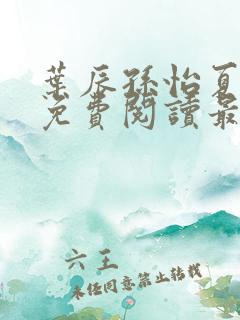 葉辰孫怡夏
免費閱讀最
六王
未經同意禁止轉載